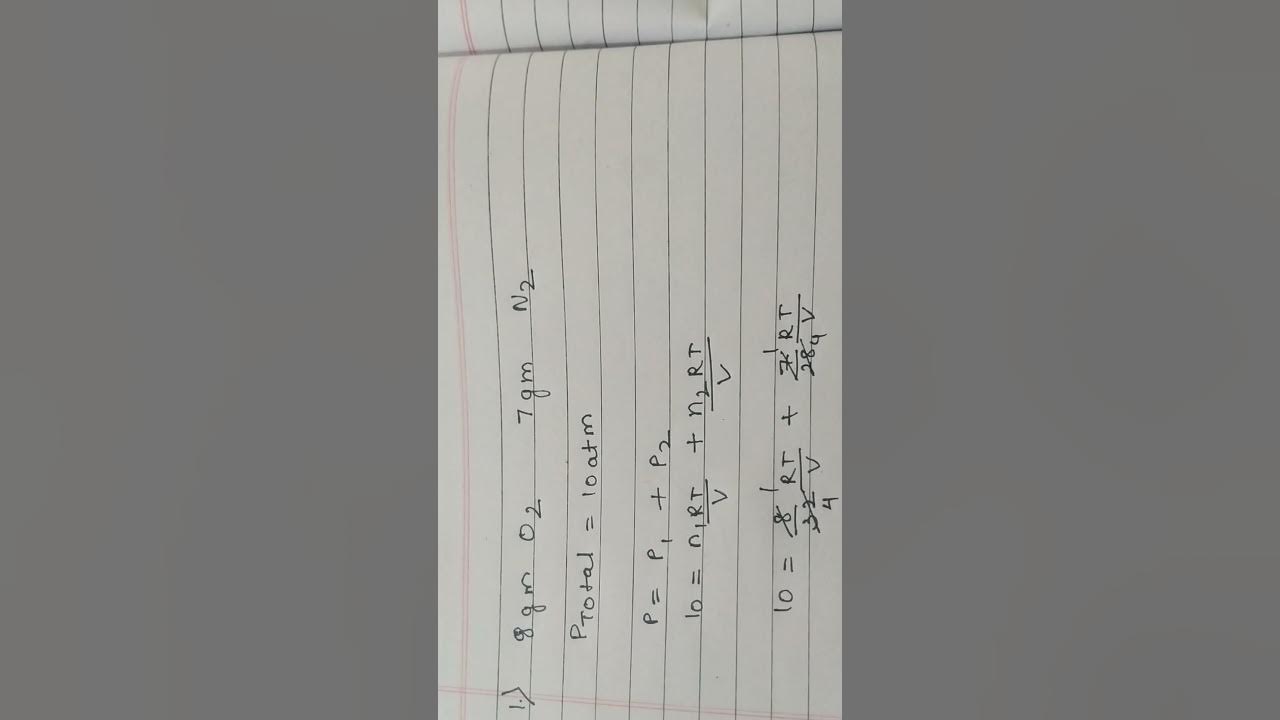 1.> 8 gm O2 7 gm N2
PTotal = 10 atm
P = P1 + P2
10 = n1RT/V + n2RT/V
10 = 8/32 1/4 RT/V + 7/28 1/4 RT/V